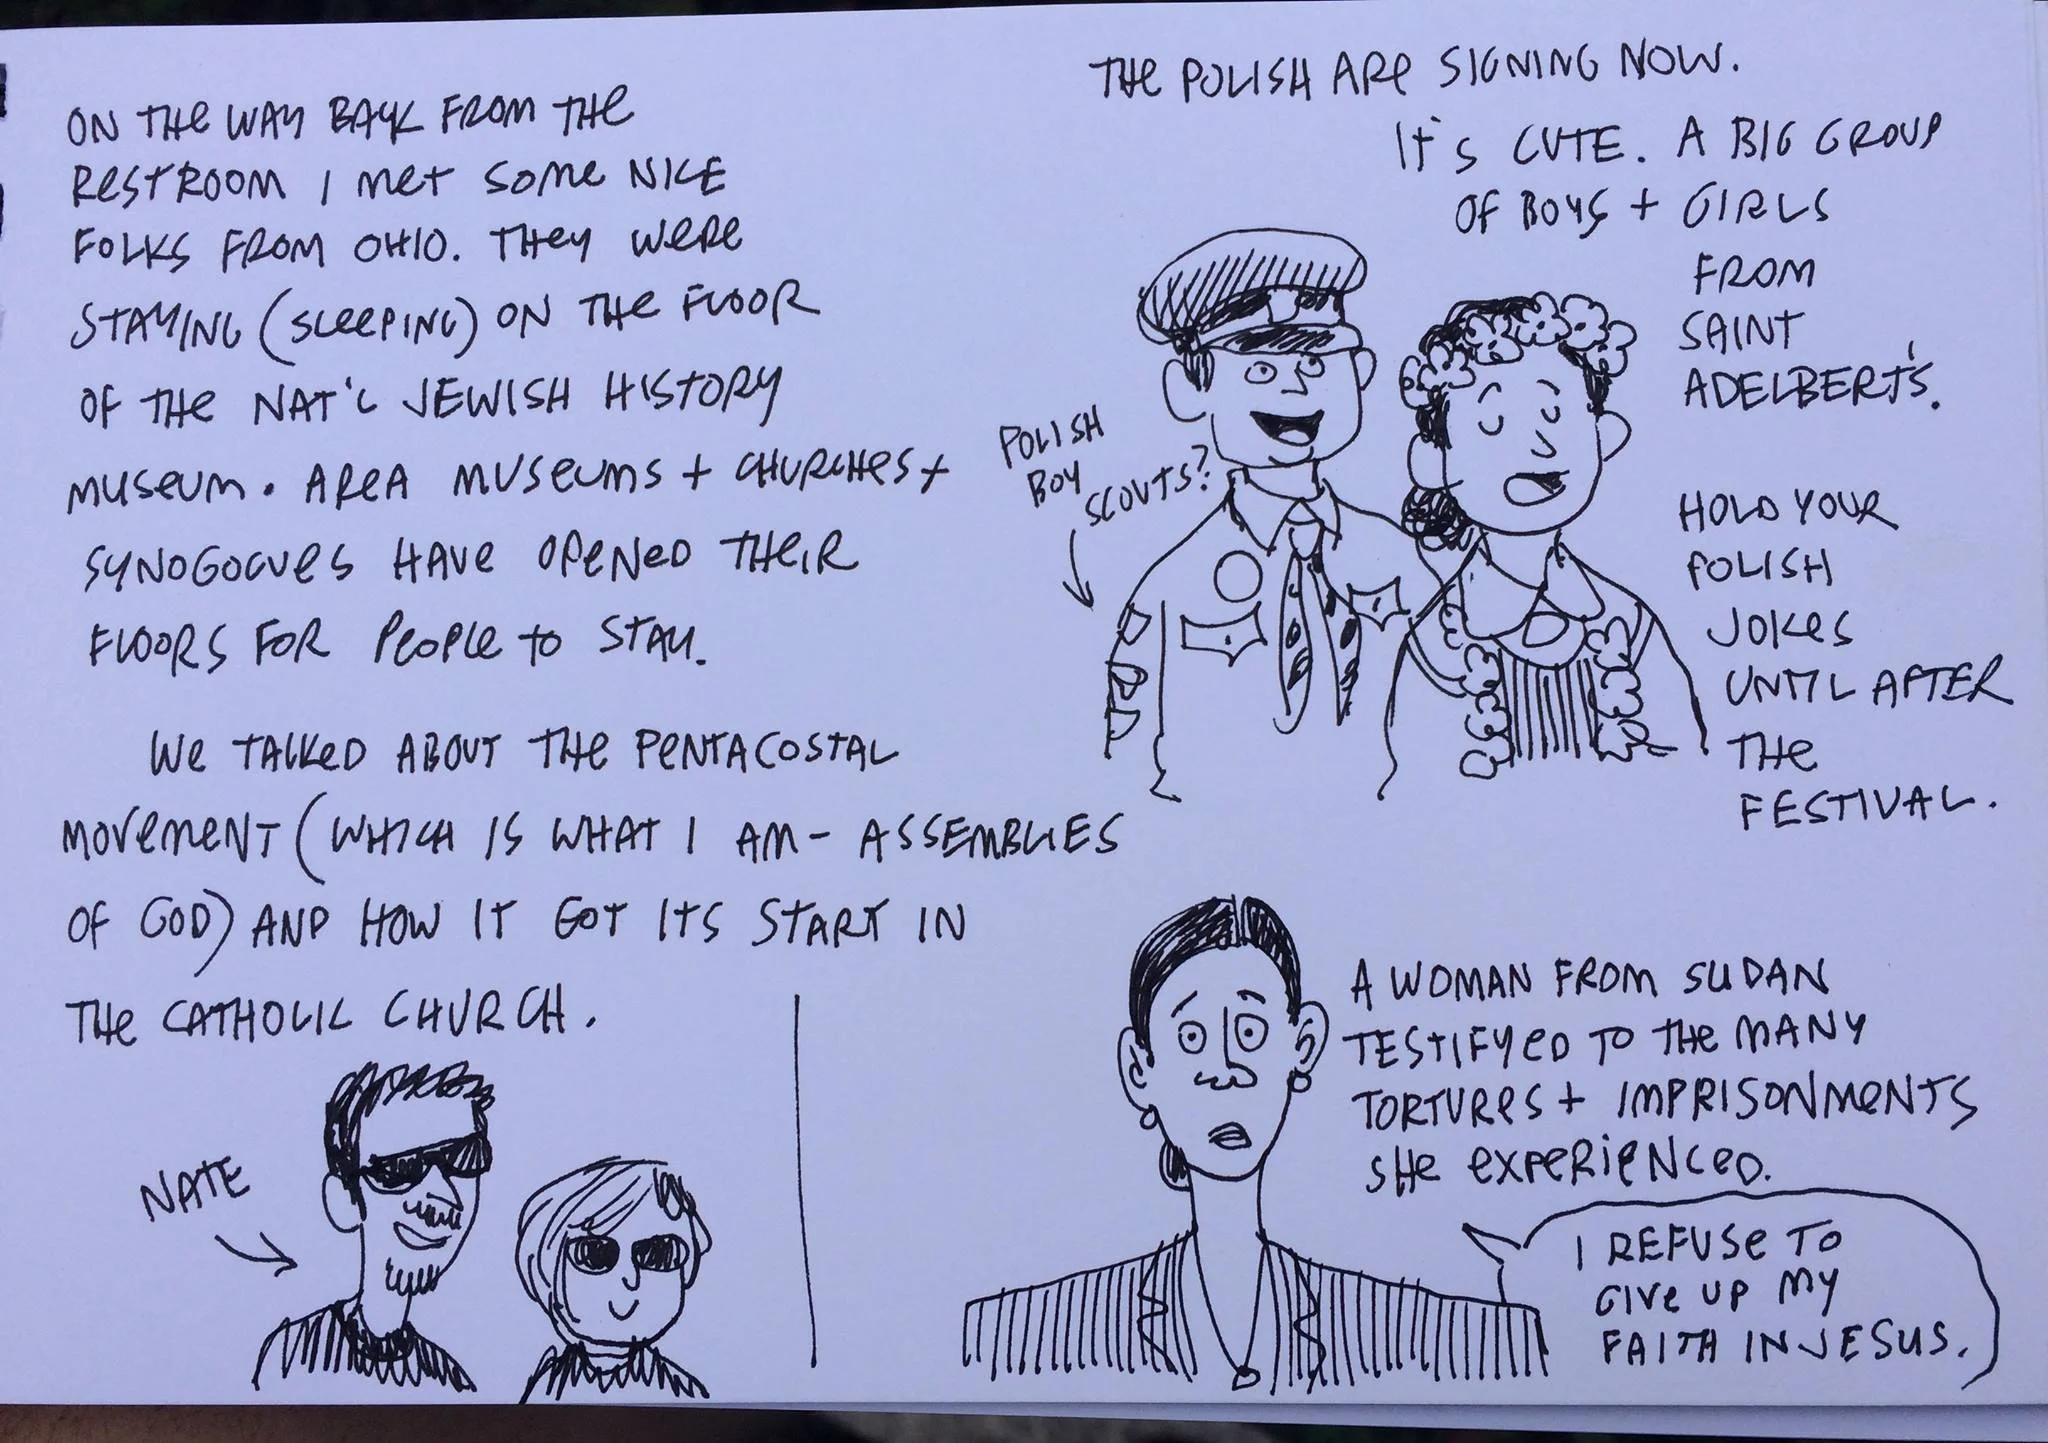 ON THE WAY BACK FROM THE
RESTROOM I MET SOME NICE
FOLKS FROM OHIO. THEY WERE
STAYING (SLEEPING) ON THE FLOOR
OF THE NAT'L JEWISH HISTORY
MUSEUM. AREA MUSEUMS + CHURCHES +
SYNOGOGUES HAVE OPENED THEIR
FLOORS FOR PEOPLE TO STAY.
WE TALKED ABOUT THE PENTACOSTAL
MOVEMENT (WHICH IS WHAT I AM - ASSEMBLIES
OF GOD) AND HOW IT GOT ITS START IN
THE CATHOLIC CHURCH.
NATE
THE POLISH ARE SIGNING NOW.
IT'S CUTE. A BIG GROUP
OF BOYS + GIRLS
FROM
SAINT
ADELBERT'S.
POLISH
BOY
SCOUTS?
HOLD YOUR
POLISH
JOKES
UNTIL AFTER
THE
FESTIVAL.
A WOMAN FROM SUDAN
TESTIFYED TO THE MANY
TORTURES + IMPRISONMENTS
SHE EXPERIENCED.
I REFUSE TO
GIVE UP MY
FAITH IN JESUS.